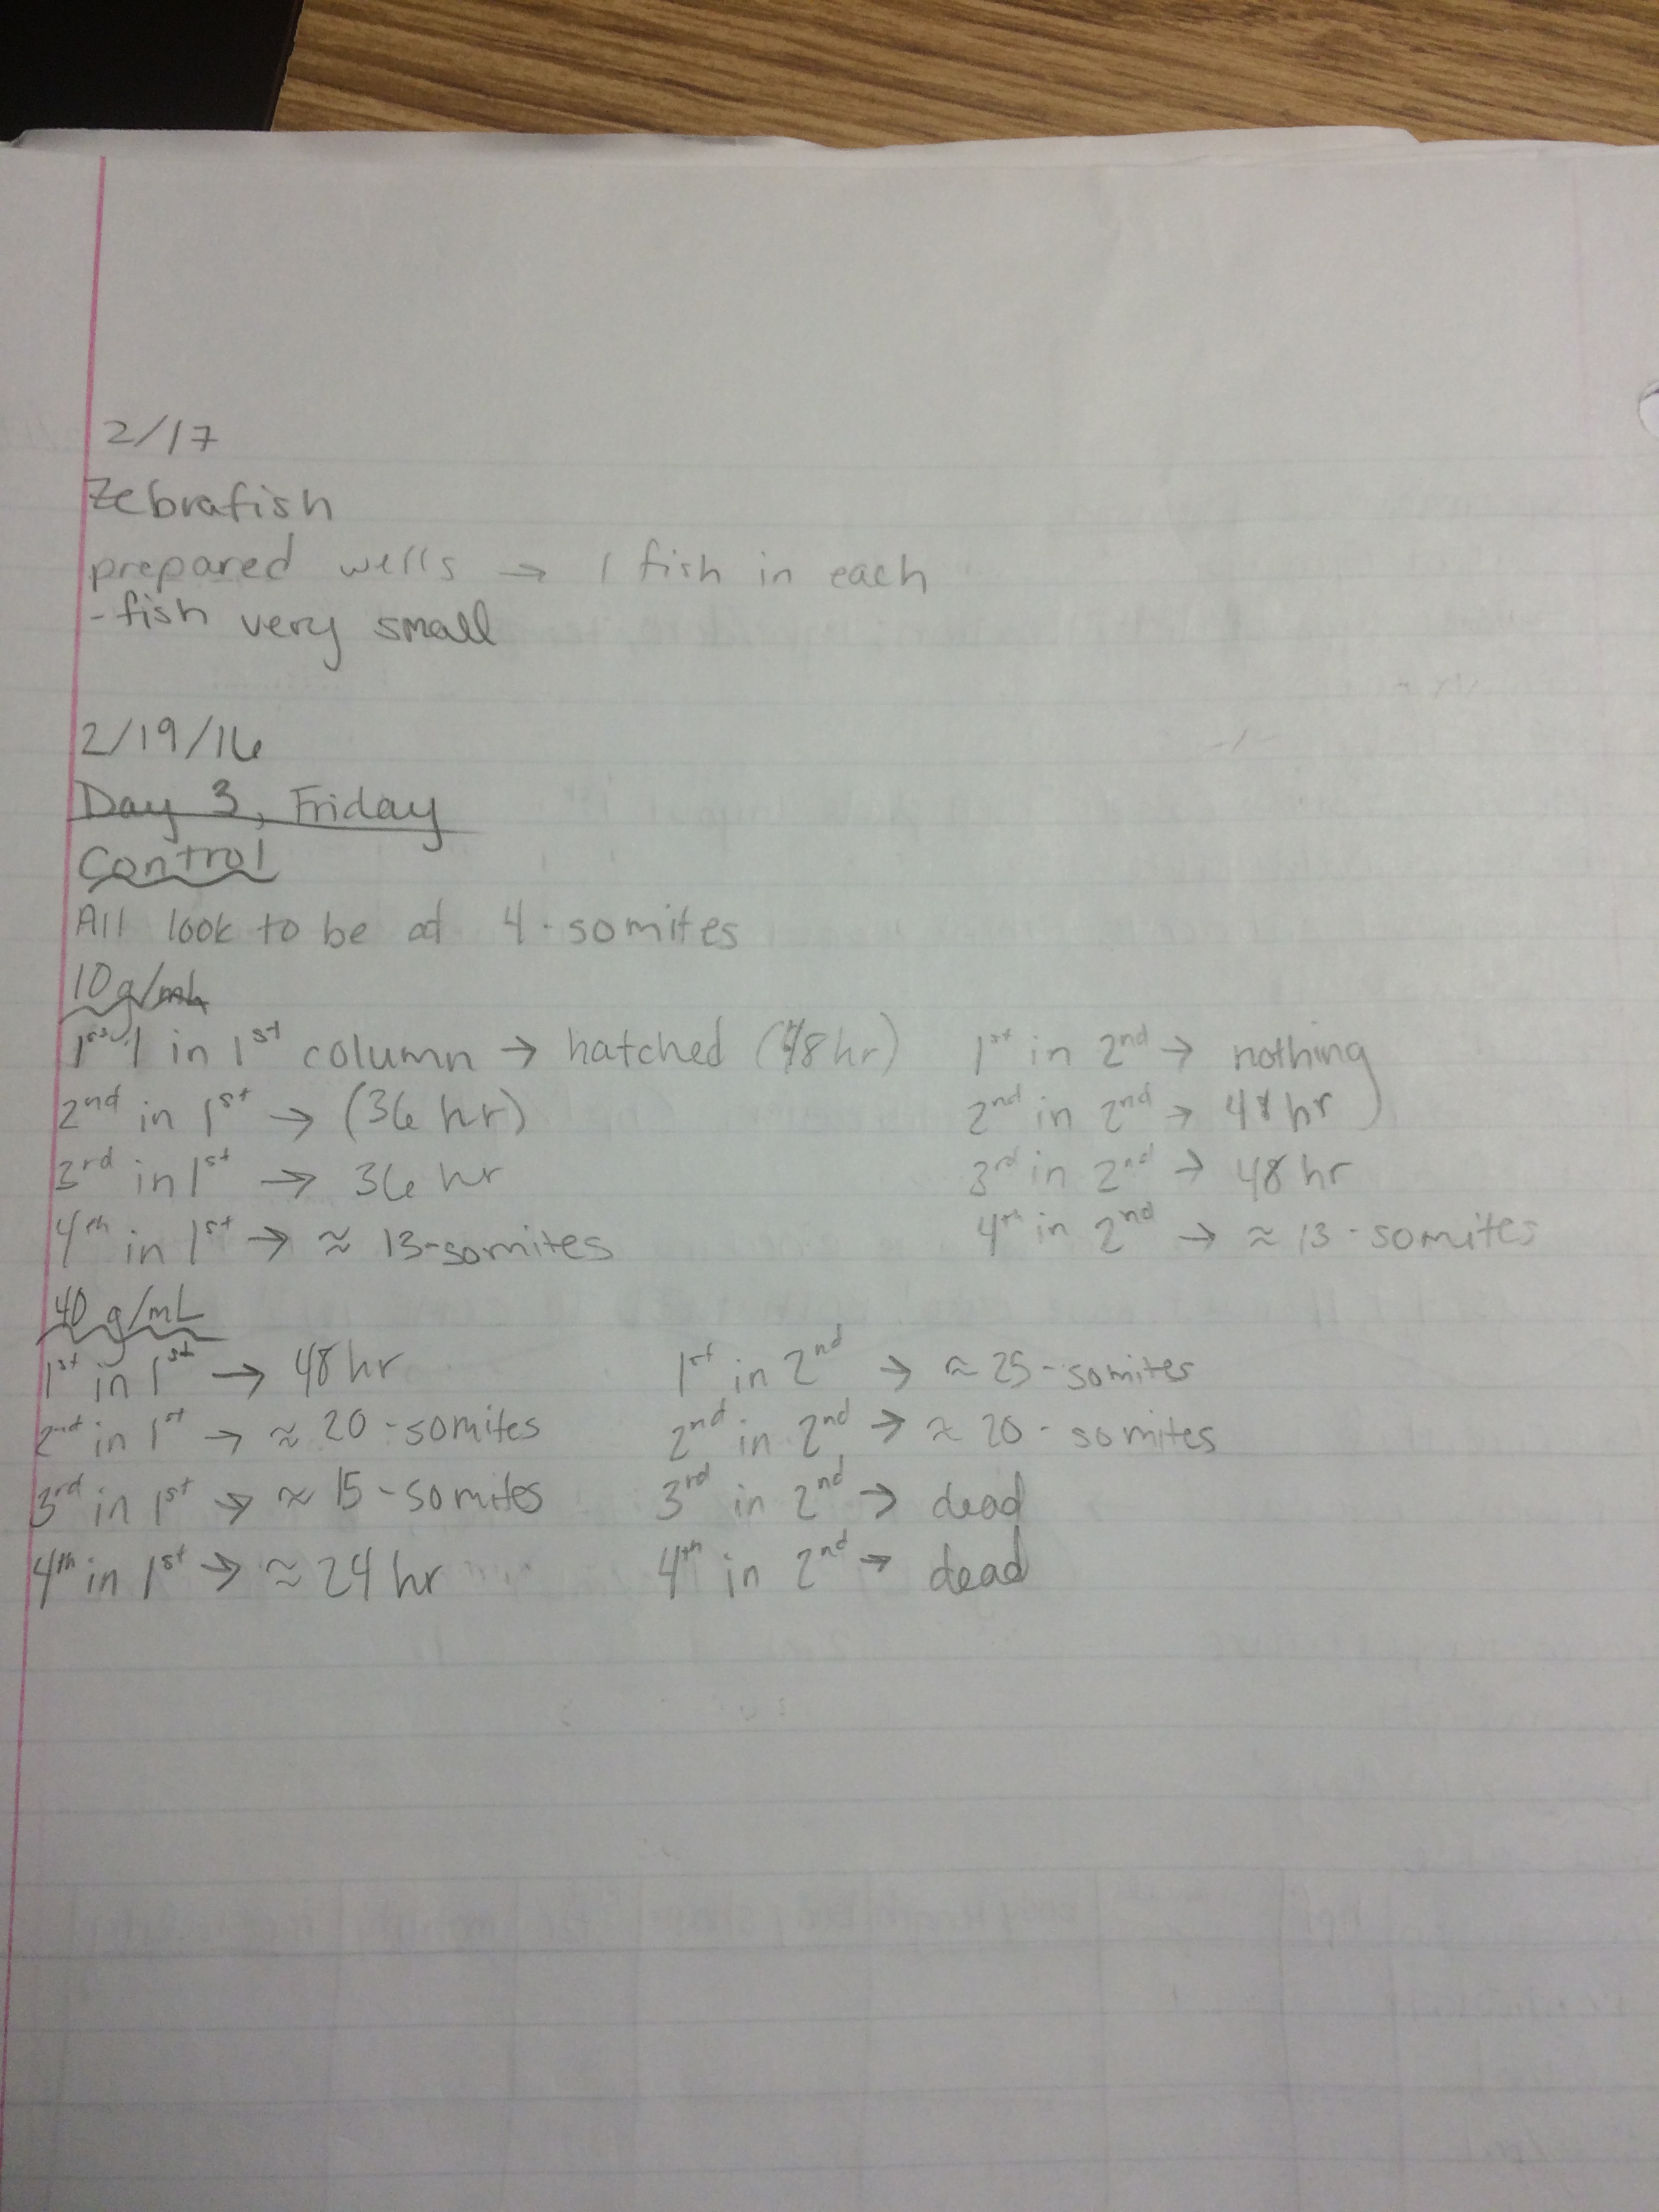 2/17
Zebrafish
prepared wells → 1 fish in each
- fish very small
2/19/16
Day 3, Friday
Control
All look to be at 4-somites
10 g/mL
1 in 1st column → hatched (48hr) 1st in 2nd → nothing
2nd in 1st → (36 hr) 2nd in 2nd → 48 hr
3rd in 1st → 36 hr 3rd in 2nd → 48 hr
4th in 1st → ≈ 13-somites 4th in 2nd → ≈ 13-somites
40 g/mL
1st in 1st → 48 hr 1st in 2nd → ≈ 25-somites
2nd in 1st → ≈ 20-somites 2nd in 2nd → ≈ 20-somites
3rd in 1st → ≈ 15-somites 3rd in 2nd → dead
4th in 1st → ≈ 24 hr 4th in 2nd → dead